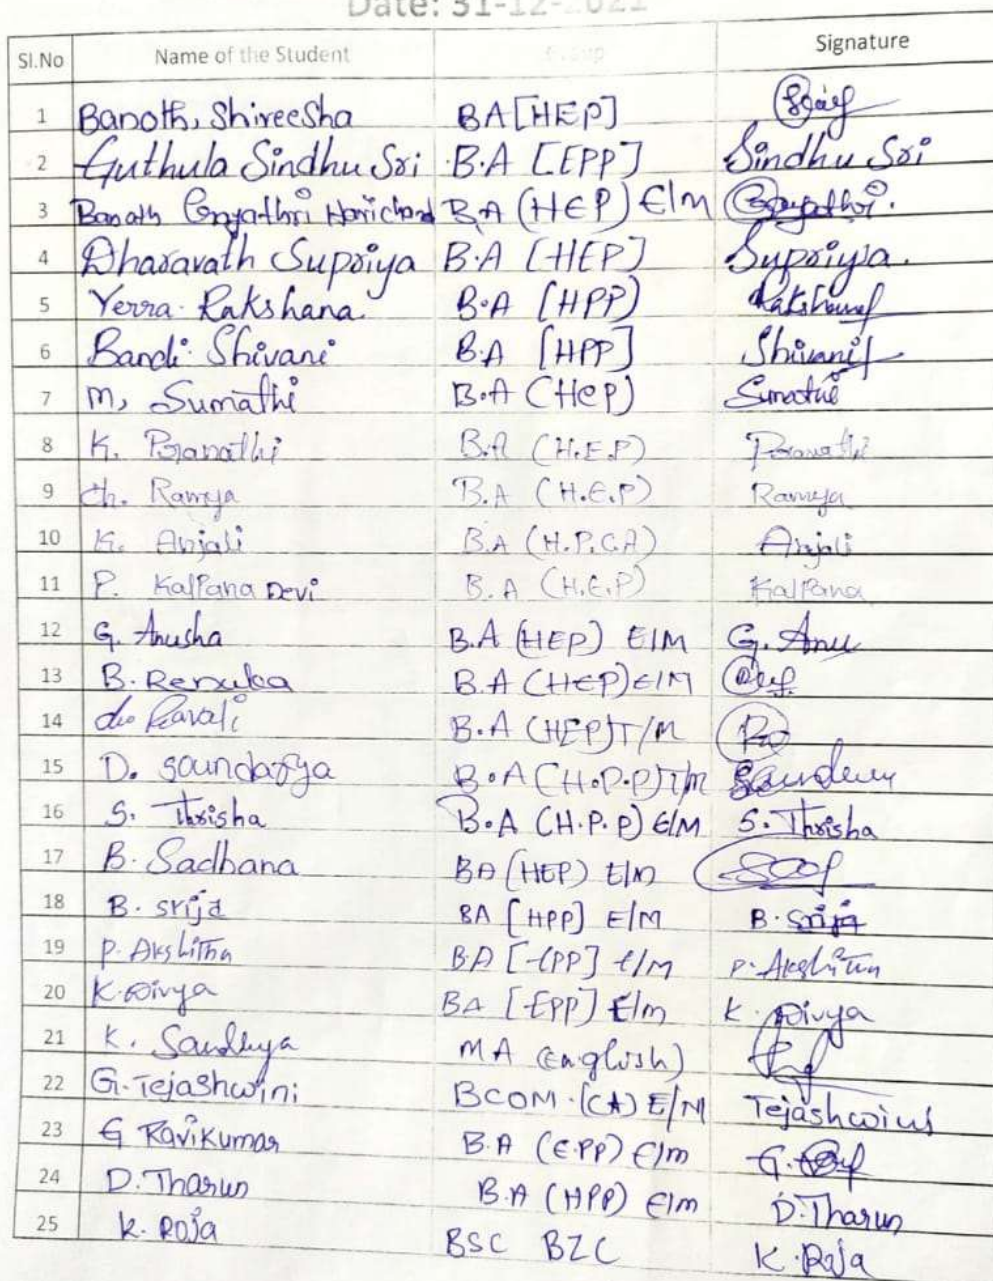 Date: 31-12-2021
Sl.No Name of the Student Group Signature
1 Banoth, Shireesha BA[HEP]
2 Guthula Sindhu Sri B.A [EPP] Sindhu Sri
3 Banoth Gayathri Harichand B.A (HEP) E/M Gayathri.
4 Dharavath Supriya B.A [HEP] Supriya.
5 Yerra Rakshana. B.A [HPP) Rakshana
6 Bandi Shivani B.A [HPP] Shivani
7 M, Sumathi B.A (HeP) Sumathi
8 K. Pranathi B.A (H.E.P) Pranathi
9 Ch. Ramya B.A (H.E.P) Ramya
10 K. Anjali B.A (H.P.CA) Anjali
11 P. Kalpana Devi B.A (H.E.P) Kalpana
12 G. Anusha B.A (HEP) E/M G. Anu
13 B. Renuka B.A (HEP) E/M
14 Kavali B.A (HEP) T/M
15 D. Soundarya B.A (H.P.P) T/M
16 S. Thrisha B.A (H.P.P) E/M S. Thrisha
17 B. Sadhana BA (HEP) E/M
18 B. Srija BA [HPP] E/M B. Srija
19 P. Akshitha BA [EPP] E/M P. Akshitha
20 K. Divya BA [EPP] E/m K. Divya
21 K. Sandhya MA (English)
22 G. Tejashwini BCOM.(CA) E/M Tejashwini
23 G Ravikumar B.A (E.PP) E/m G.
24 D. Tharun B.A (HPP) E/m D. Tharun
25 K. Roja BSC BZC K. Roja